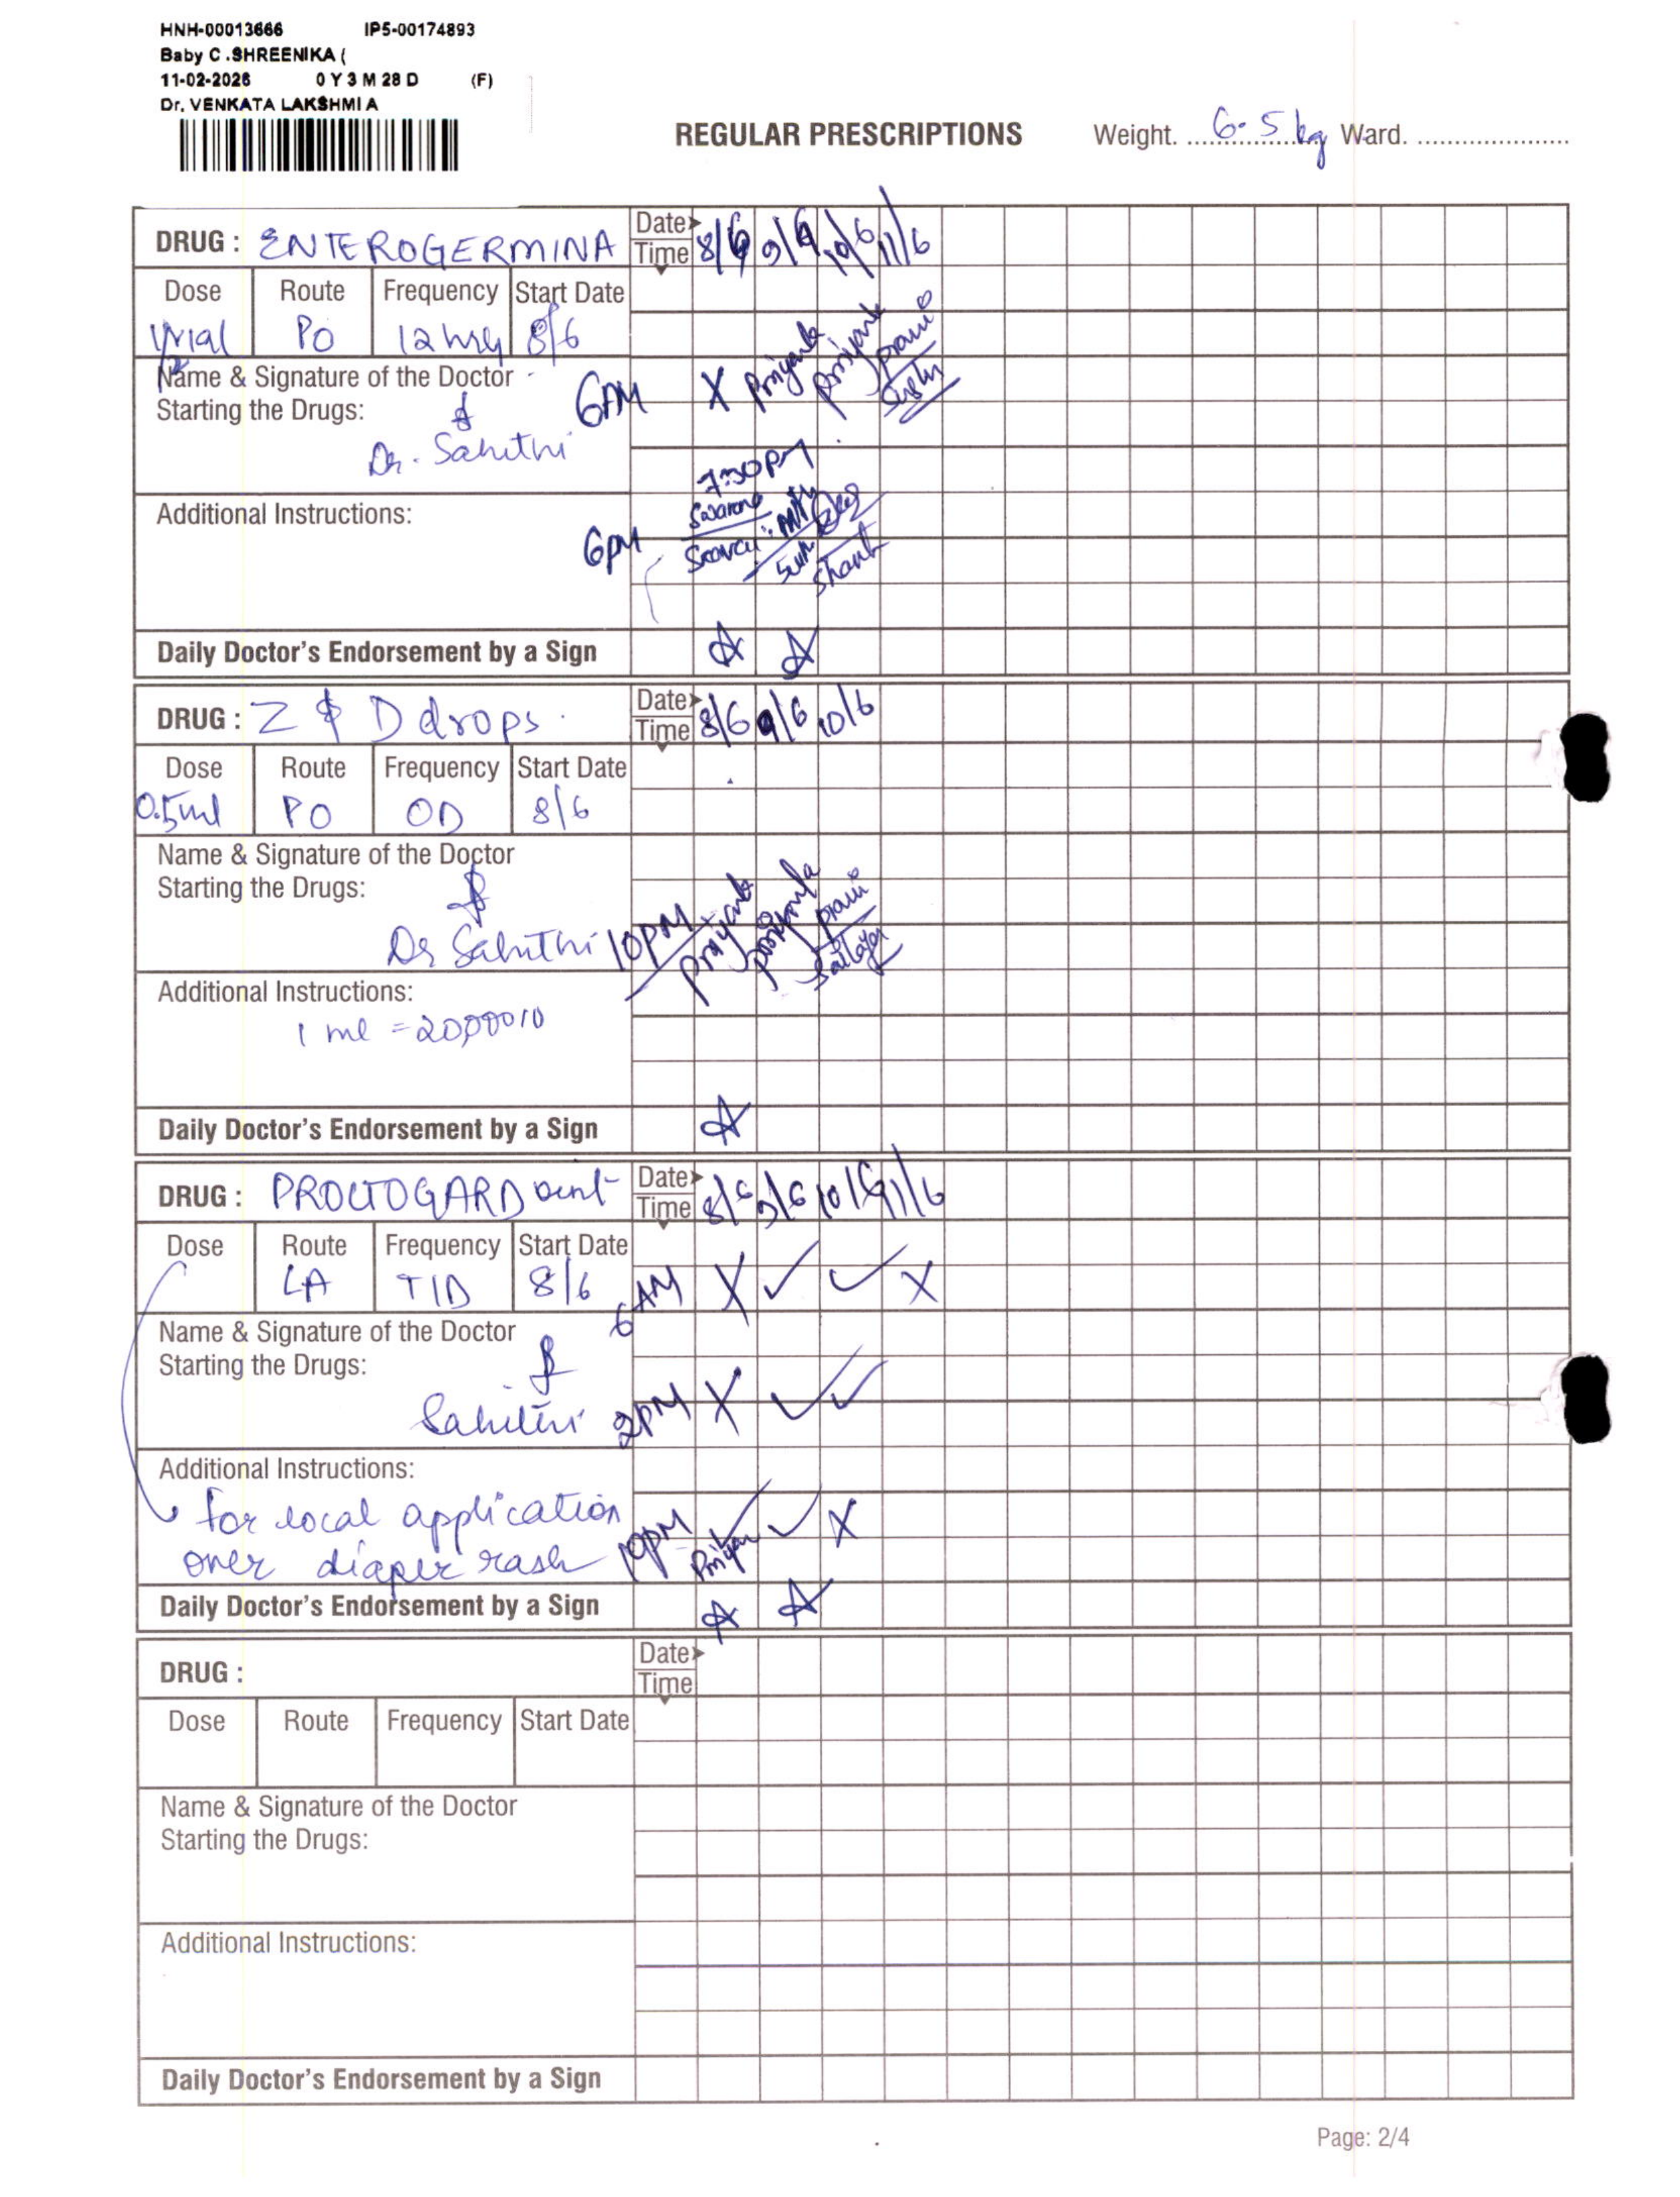 HNH-00013666 IP5-00174893
Baby C .SHREENIKA (
11-02-2026 0 Y 3 M 28 D (F)
Dr. VENKATA LAKSHMI A
REGULAR PRESCRIPTIONS Weight. 6.5 kg Ward.
DRUG : ENTEROGERMINA Date 8/6 9/6 10/6 11/6
Time
Dose Route Frequency Start Date
PO 12 hrly 8/6
Name & Signature of the Doctor
Starting the Drugs:
6AM X Priyanka Priyanka
Dr. Sahithi
7:30pm
Additional Instructions:
6pm
Daily Doctor's Endorsement by a Sign
DRUG : Z & D drops. Date 8/6 9/6 10/6
Time
Dose Route Frequency Start Date
0.5ml PO OD 8/6
Name & Signature of the Doctor
Starting the Drugs:
Dr Sahithi 10PM
Additional Instructions:
1 ml =
Daily Doctor's Endorsement by a Sign
DRUG : PROCTOGARD oint Date 8/6 9/6 10/6 11/6
Time
Dose Route Frequency Start Date
LA TID 8/6 6AM X ✓ ✓ X
Name & Signature of the Doctor
Starting the Drugs:
Sahithi 2PM X ✓ ✓
Additional Instructions:
for local application
over diaper rash 10pm ✓ ✓ X
Daily Doctor's Endorsement by a Sign
DRUG : Date
Time
Dose Route Frequency Start Date
Name & Signature of the Doctor
Starting the Drugs:
Additional Instructions:
Daily Doctor's Endorsement by a Sign
Page: 2/4